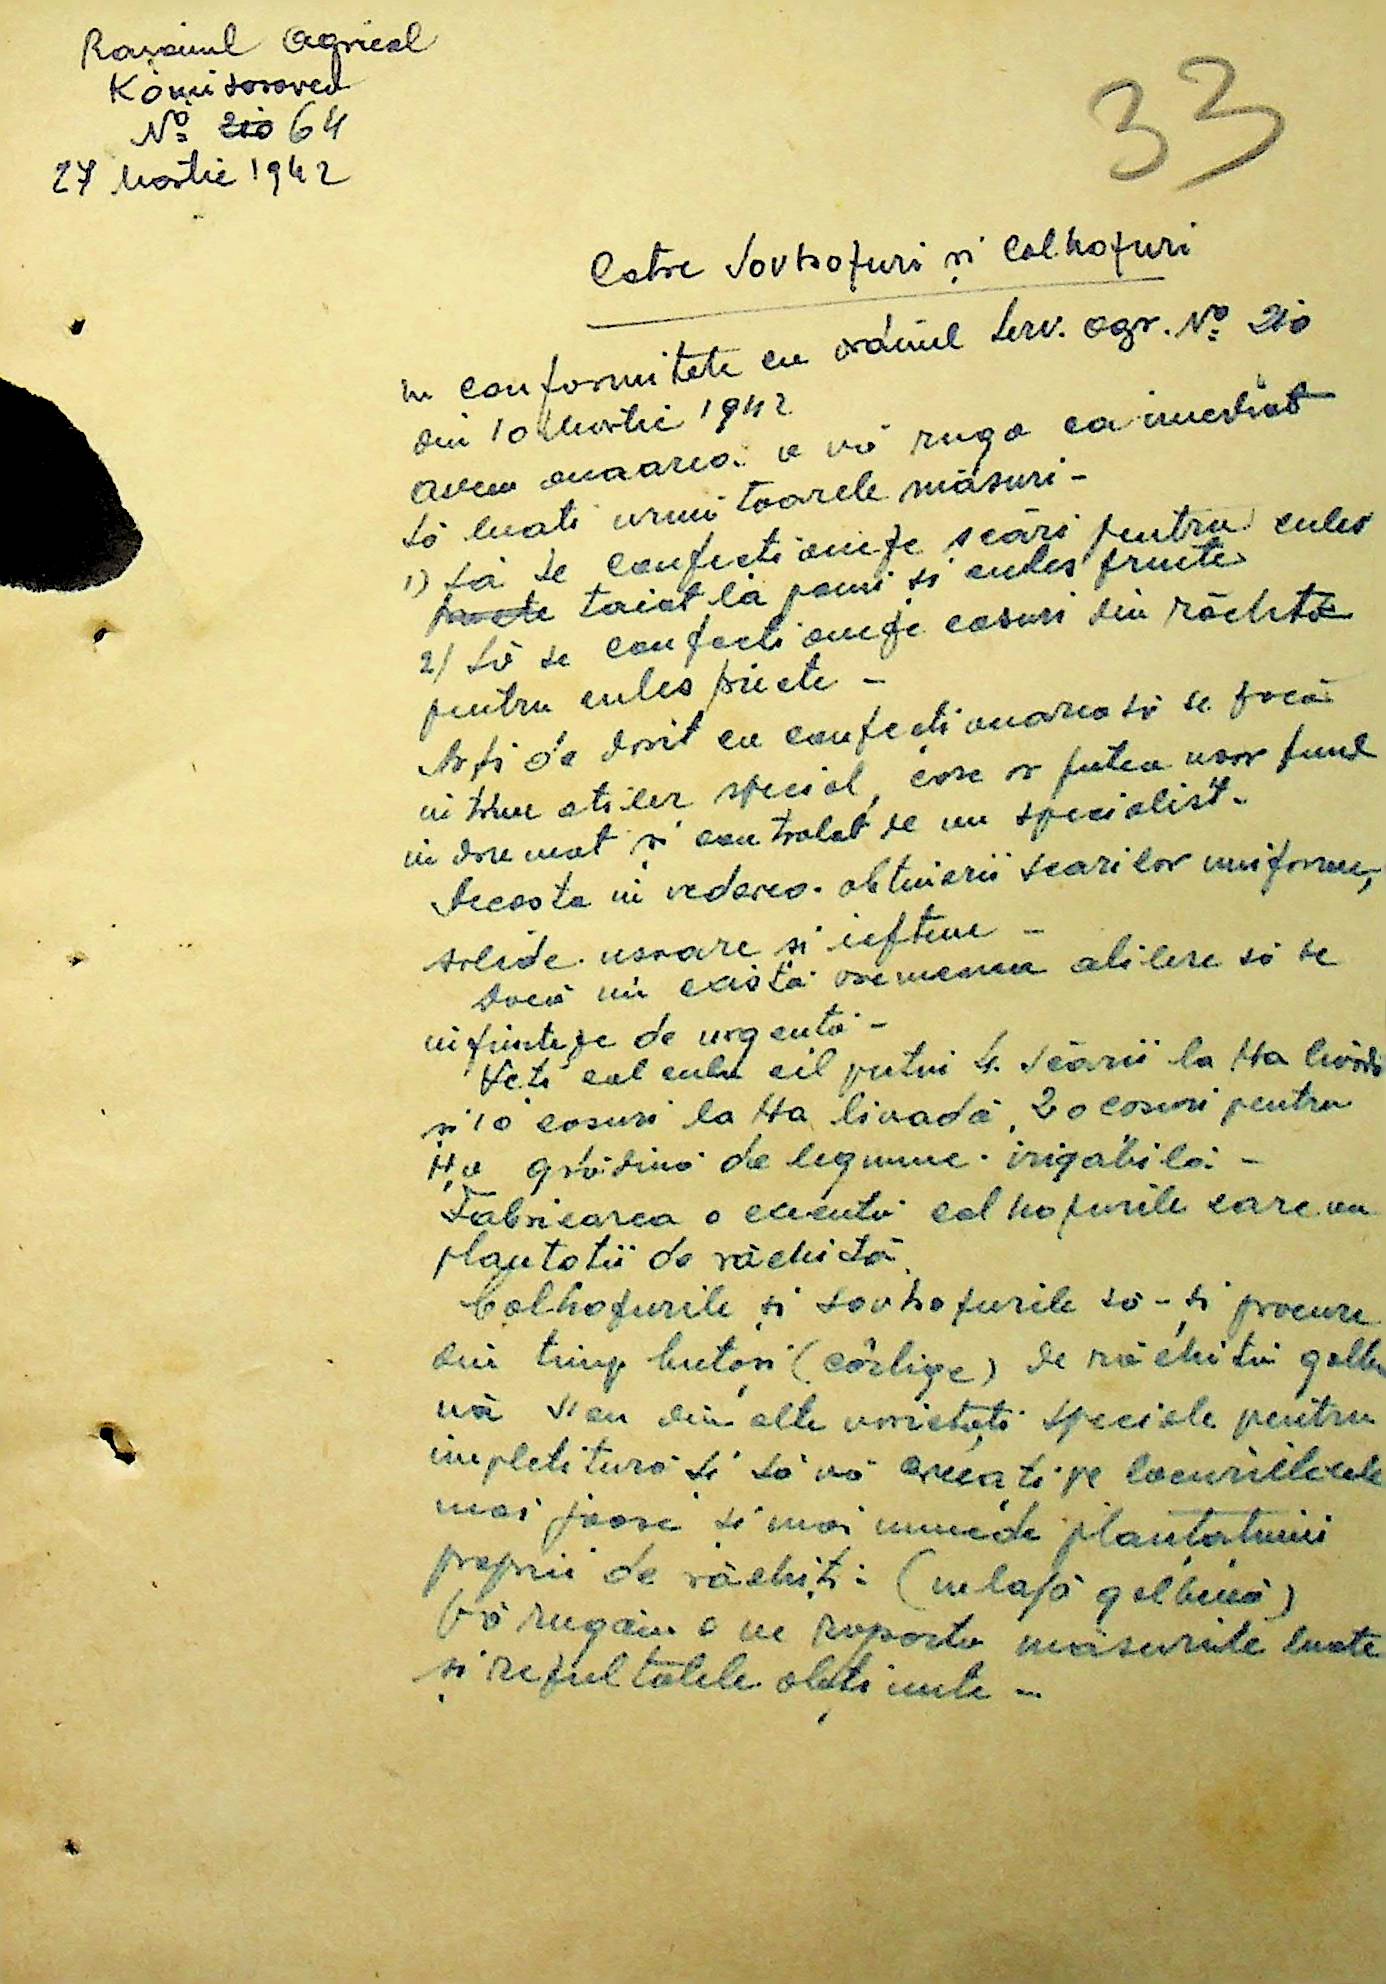 Raionul Agricol
Komisarovca
No 210 64
27 Martie 1942
33
Catre Sovhozuri și Colhozuri
In conformitate cu ordinul Serv. Agr. No 210
din 10 Martie 1942
avem onoarea a vă ruga ca imediat
să luati urmitoarele măsuri -
1) Să se confectioneze scări pentru cules
fructe taiat la pomi și cules fructe
2) Să se confectioneze cosuri din răchită
pentru cules fructe -
Ar fi de dorit ca confectionarea să se facă
in trun atilier special, care ar putea usor fund
indrumat și controlat de un specialist -
Aceasta in vederea obtinerii scarilor uniforme,
solide usoare și ieftine -
Dacă nu există asemenea atiliere să se
infiinteze de urgentă -
Veti calcula cil putin 4 scării la Ha livadă
și 10 cosuri la Ha livadă, 20 cosuri pentru
Ha grădină de legume irigabilă -
Fabricarea o execută colhozurile care au
plantatii de răchită.
Colhozurile și sovhozurile să-și procure
din timp butași (cârlige) de răchită galbe
nă sau din alte varietăti speciale pentru
impletitură și să vă creați pe locurile cele
mai joase și mai umede plantațiuni
proprii de răchiți (nelază galbenă)
Vă rugăm a ne raporta măsurile luate
și rezultatele obținute -